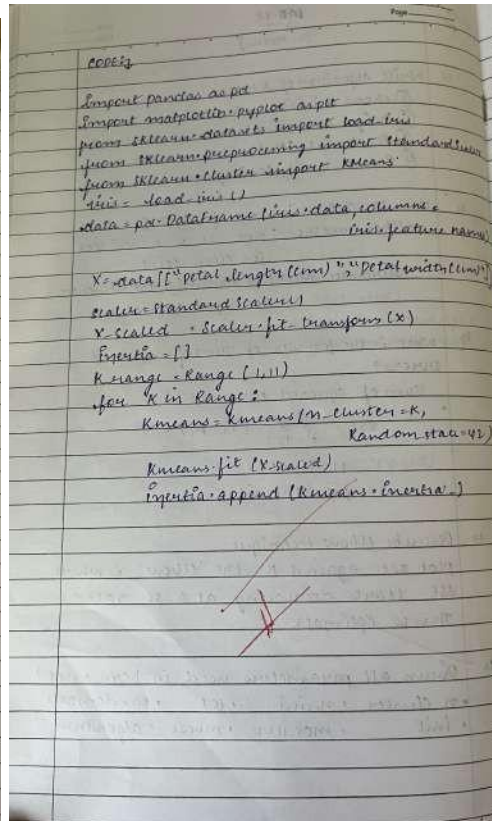 Page
CODE:
Import pandas as pd
Import matplotlib.pyplot as plt
from sklearn.datasets import load_iris
from sklearn.preprocessing import StandardScaler
from sklearn.cluster import KMeans
iris = load_iris()
data = pd.DataFrame(iris.data, columns =
iris.feature names)
X = data[["petal length (cm)", "petal width (cm)"]
scaler = Standard Scaler()
X_scaled = scaler.fit_transform(X)
Inertia = []
K range = Range (1,11)
for K in Range:
Kmeans = Kmeans(n_cluster = K,
Random state = 42)
Kmeans.fit (X_scaled)
inertia.append (Kmeans.inertia_)